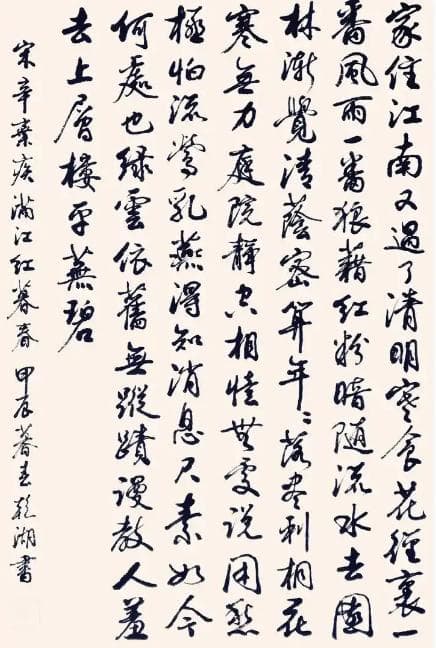 家住江南又過了清明寒食花徑裏一
番風雨一番狼藉紅粉暗随流水去園
林漸覺清蔭密算年〻落盡刺桐花
寒無力庭院靜空相憶無處說閑愁
極怕流鶯乳燕得知消息尺素如今
何處也綠雲依舊無蹤蹟謾教人羞
去上層樓平蕪碧
宋辛棄疾滿江紅暮春 甲辰暮春湖書